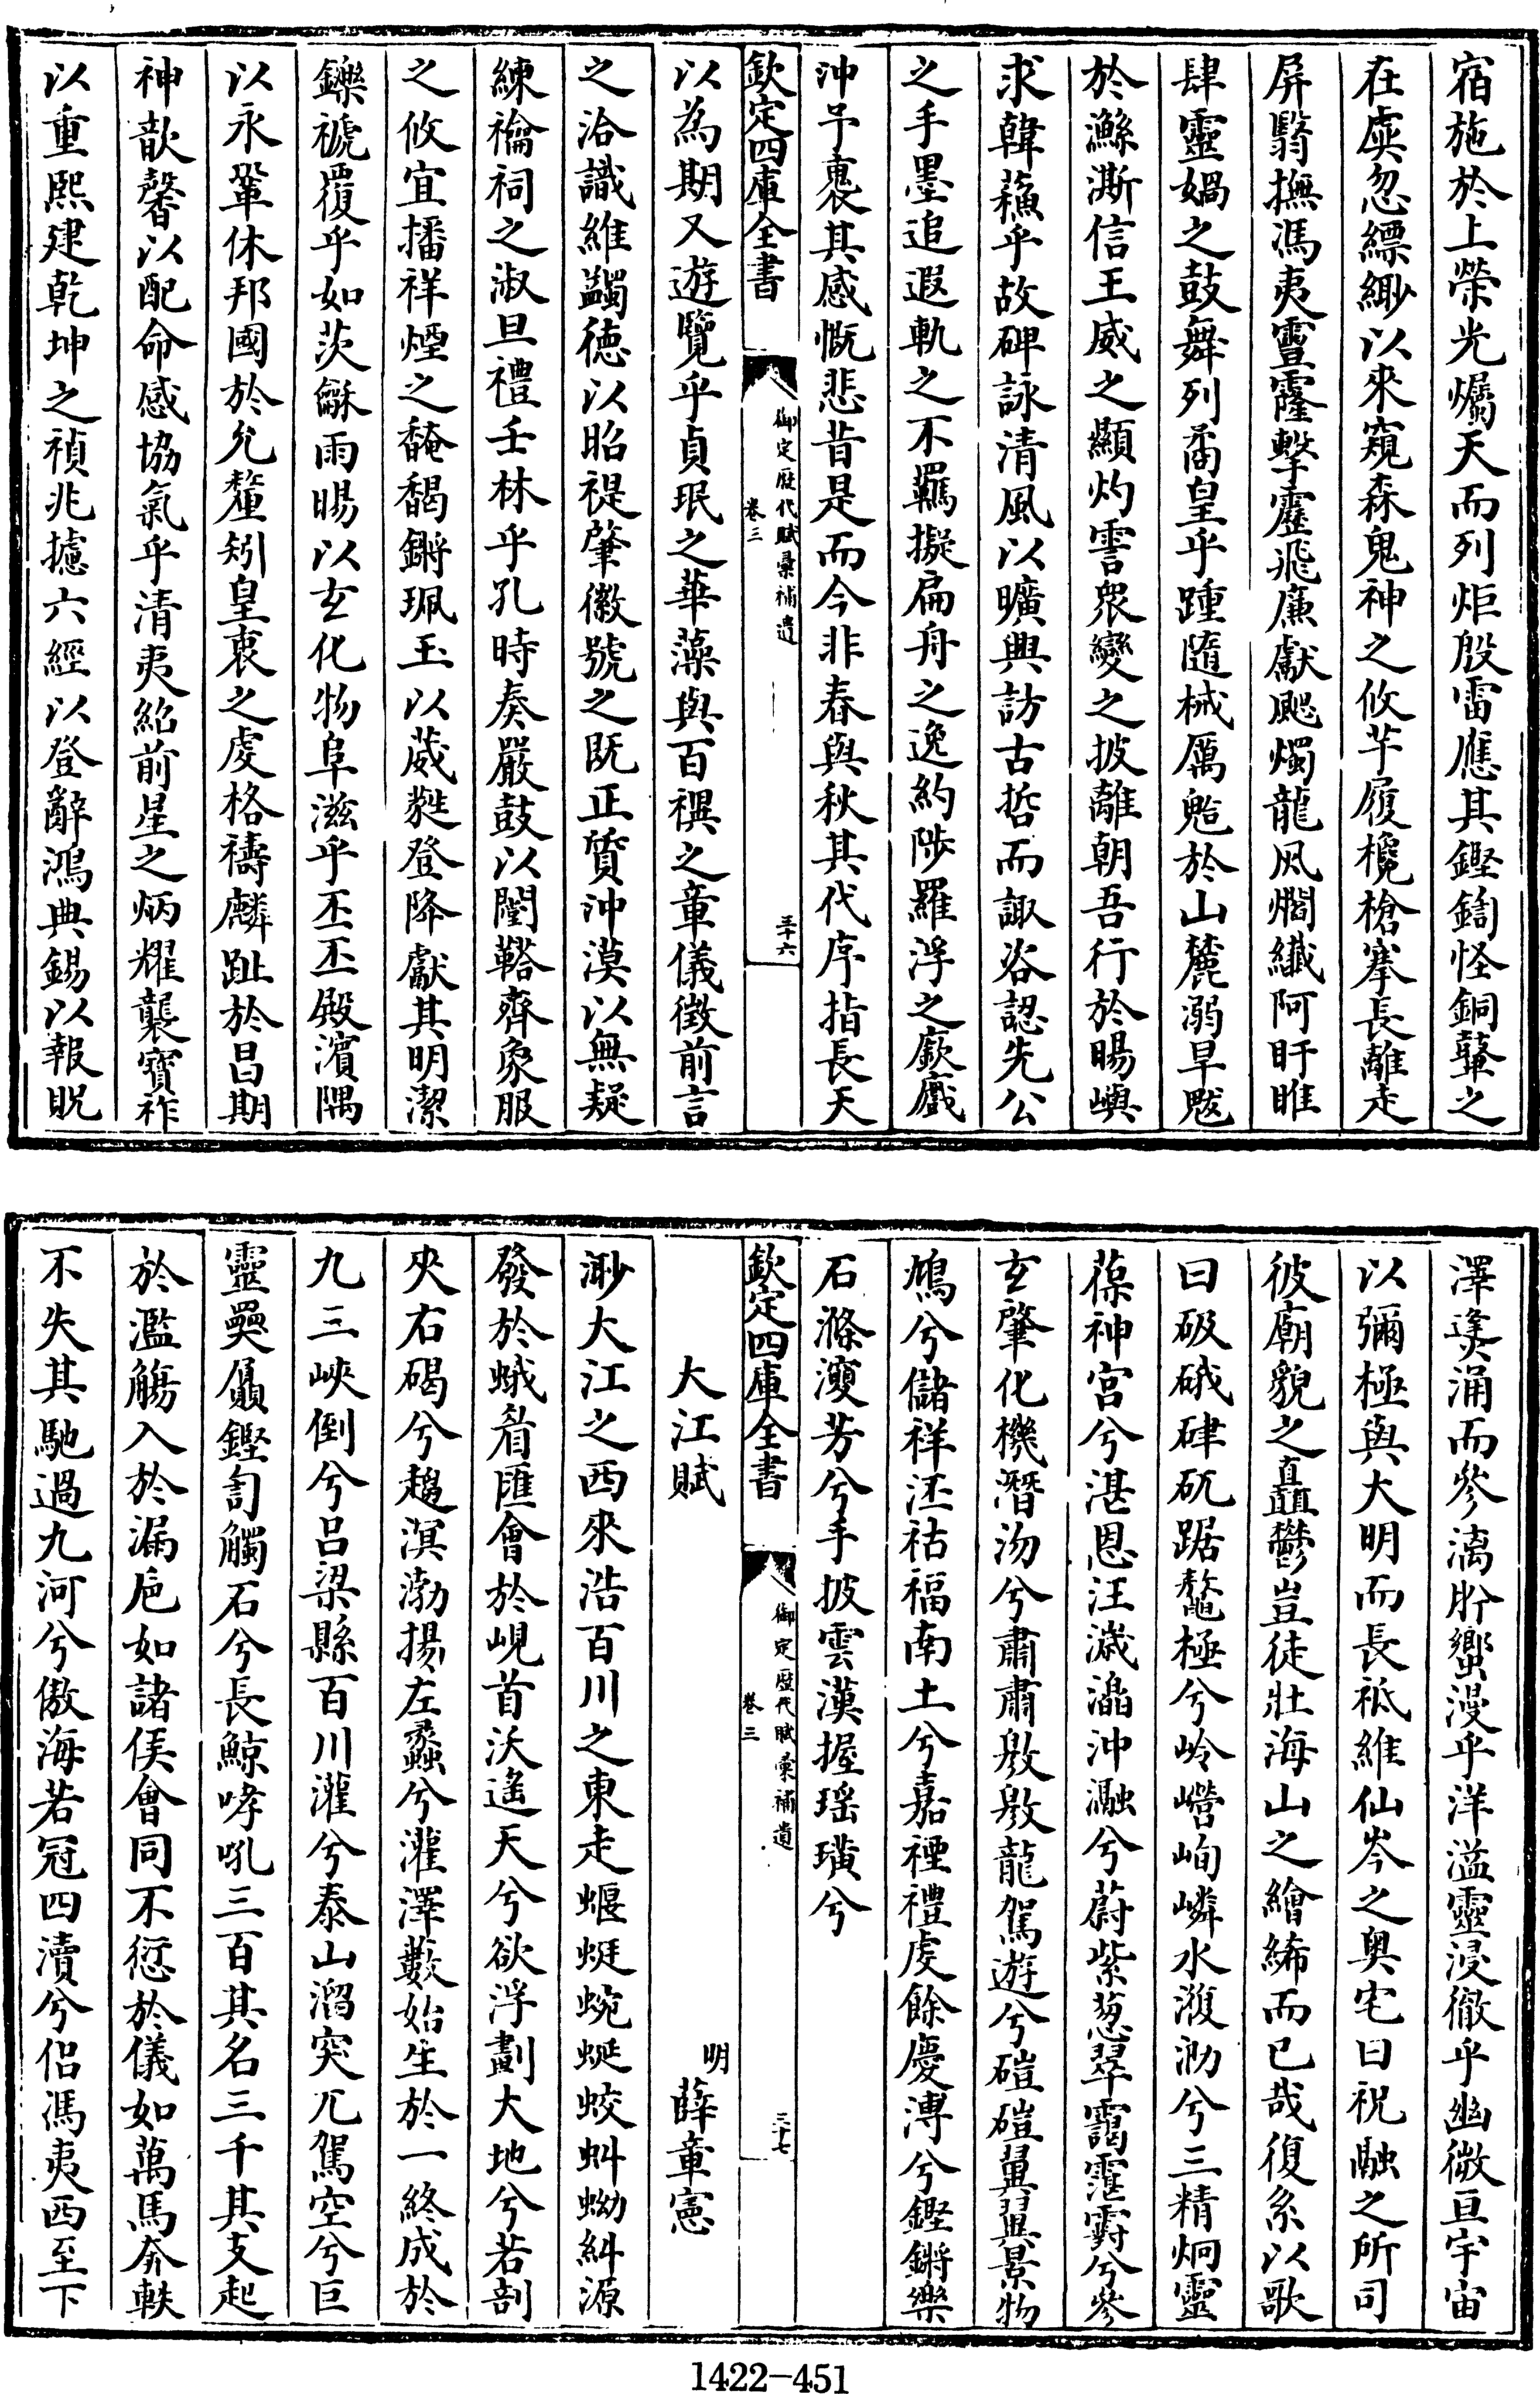 宿施於上榮光爥天而列炬殷雷應其鏗鍧怪銅鼙之
在虡忽縹緲以來窺森鬼神之攸芊履欃槍搴長離走
屏翳撫馮夷霻霳擊靂飛廉獻颸燭龍風爓纖阿盱睢
肆靈媧之鼓舞列矞皇乎踵隨械厲鬽於山麓溺旱魃
於鯀澌信王威之顯灼霅衆變之披離朝吾行於暘嶼
求韓蘓乎故碑詠清風以曠興訪古哲而諏咨認先公
之手墨追遐軌之不羈擬扁舟之逸約陟羅浮之嶔巇
沖予裏其感慨悲昔是而今非春與秋其代序指長天
欽定四庫全書 御定歴代賦彚補遺 卷三 三十六
以為期又遊覽乎貞珉之華藻與百禩之章儀徵前言
之洽識維蠲徳以昭禔肇徽號之既正質沖漠以無疑
練禴祠之淑旦禮壬林乎孔時奏嚴鼓以闛鞳齊象服
之攸宜播祥煙之馣馤鏘珮玉以葳甤登降獻其明潔
鑠褫覆乎如茨龢雨暘以玄化物阜滋乎丕丕殿濱隅
以永鞏休邦國於允釐矧皇衷之虔格禱麟趾於昌期
神歆馨以配命感協氣乎清夷紹前星之炳耀襲寳祚
以重熙建乾坤之禎兆攄六經以登辭鴻典錫以報貺
澤逵涌而參漓肸蠁漫乎洋溢靈浸徹乎幽微亘宇宙
以彌極與大明而長祗維仙岑之奥宅曰祝融之所司
彼廟貌之矗鬱豈徒壯海山之繪絺而已哉復系以歌
曰砐硪硉矹踞鼇極兮岭巆峋嶙水澓泐兮三精炯靈
葆神宫兮湛恩汪濊瀹沖瀜兮蔚紫葱翠靄霮䨴兮參
玄肇化機潛沕兮肅肅敫敫龍駕遊兮磑磑翼翼景物
鳩兮儲祥丕祜福南土兮嘉禋禮虔餘慶溥兮鏗鏘樂
石滌瓊芳兮手披雲漢握瑶璜兮
欽定四庫全書 御定歴代賦彚補遺 卷三 三十七
大江賦
明 薛章憲
渺大江之西來浩百川之東走蝘蜓蜿蜒蛟虯蚴糾源
發於蛾眉匯會於峴首沃遙天兮欲浮劃大地兮若剖
夾右碣兮趨溟渤揚左蠡兮灌澤藪始生於一終成於
九三峽倒兮吕梁縣百川灌兮泰山溜突兀駕空兮巨
靈奰屭鏗訇觸石兮長鯨哮吼三百其名三千其支起
於濫觴入於漏巵如諸侯會同不愆於儀如萬馬奔軼
不失其馳過九河兮傲海若冠四瀆兮侣馮夷西至下
1422-451